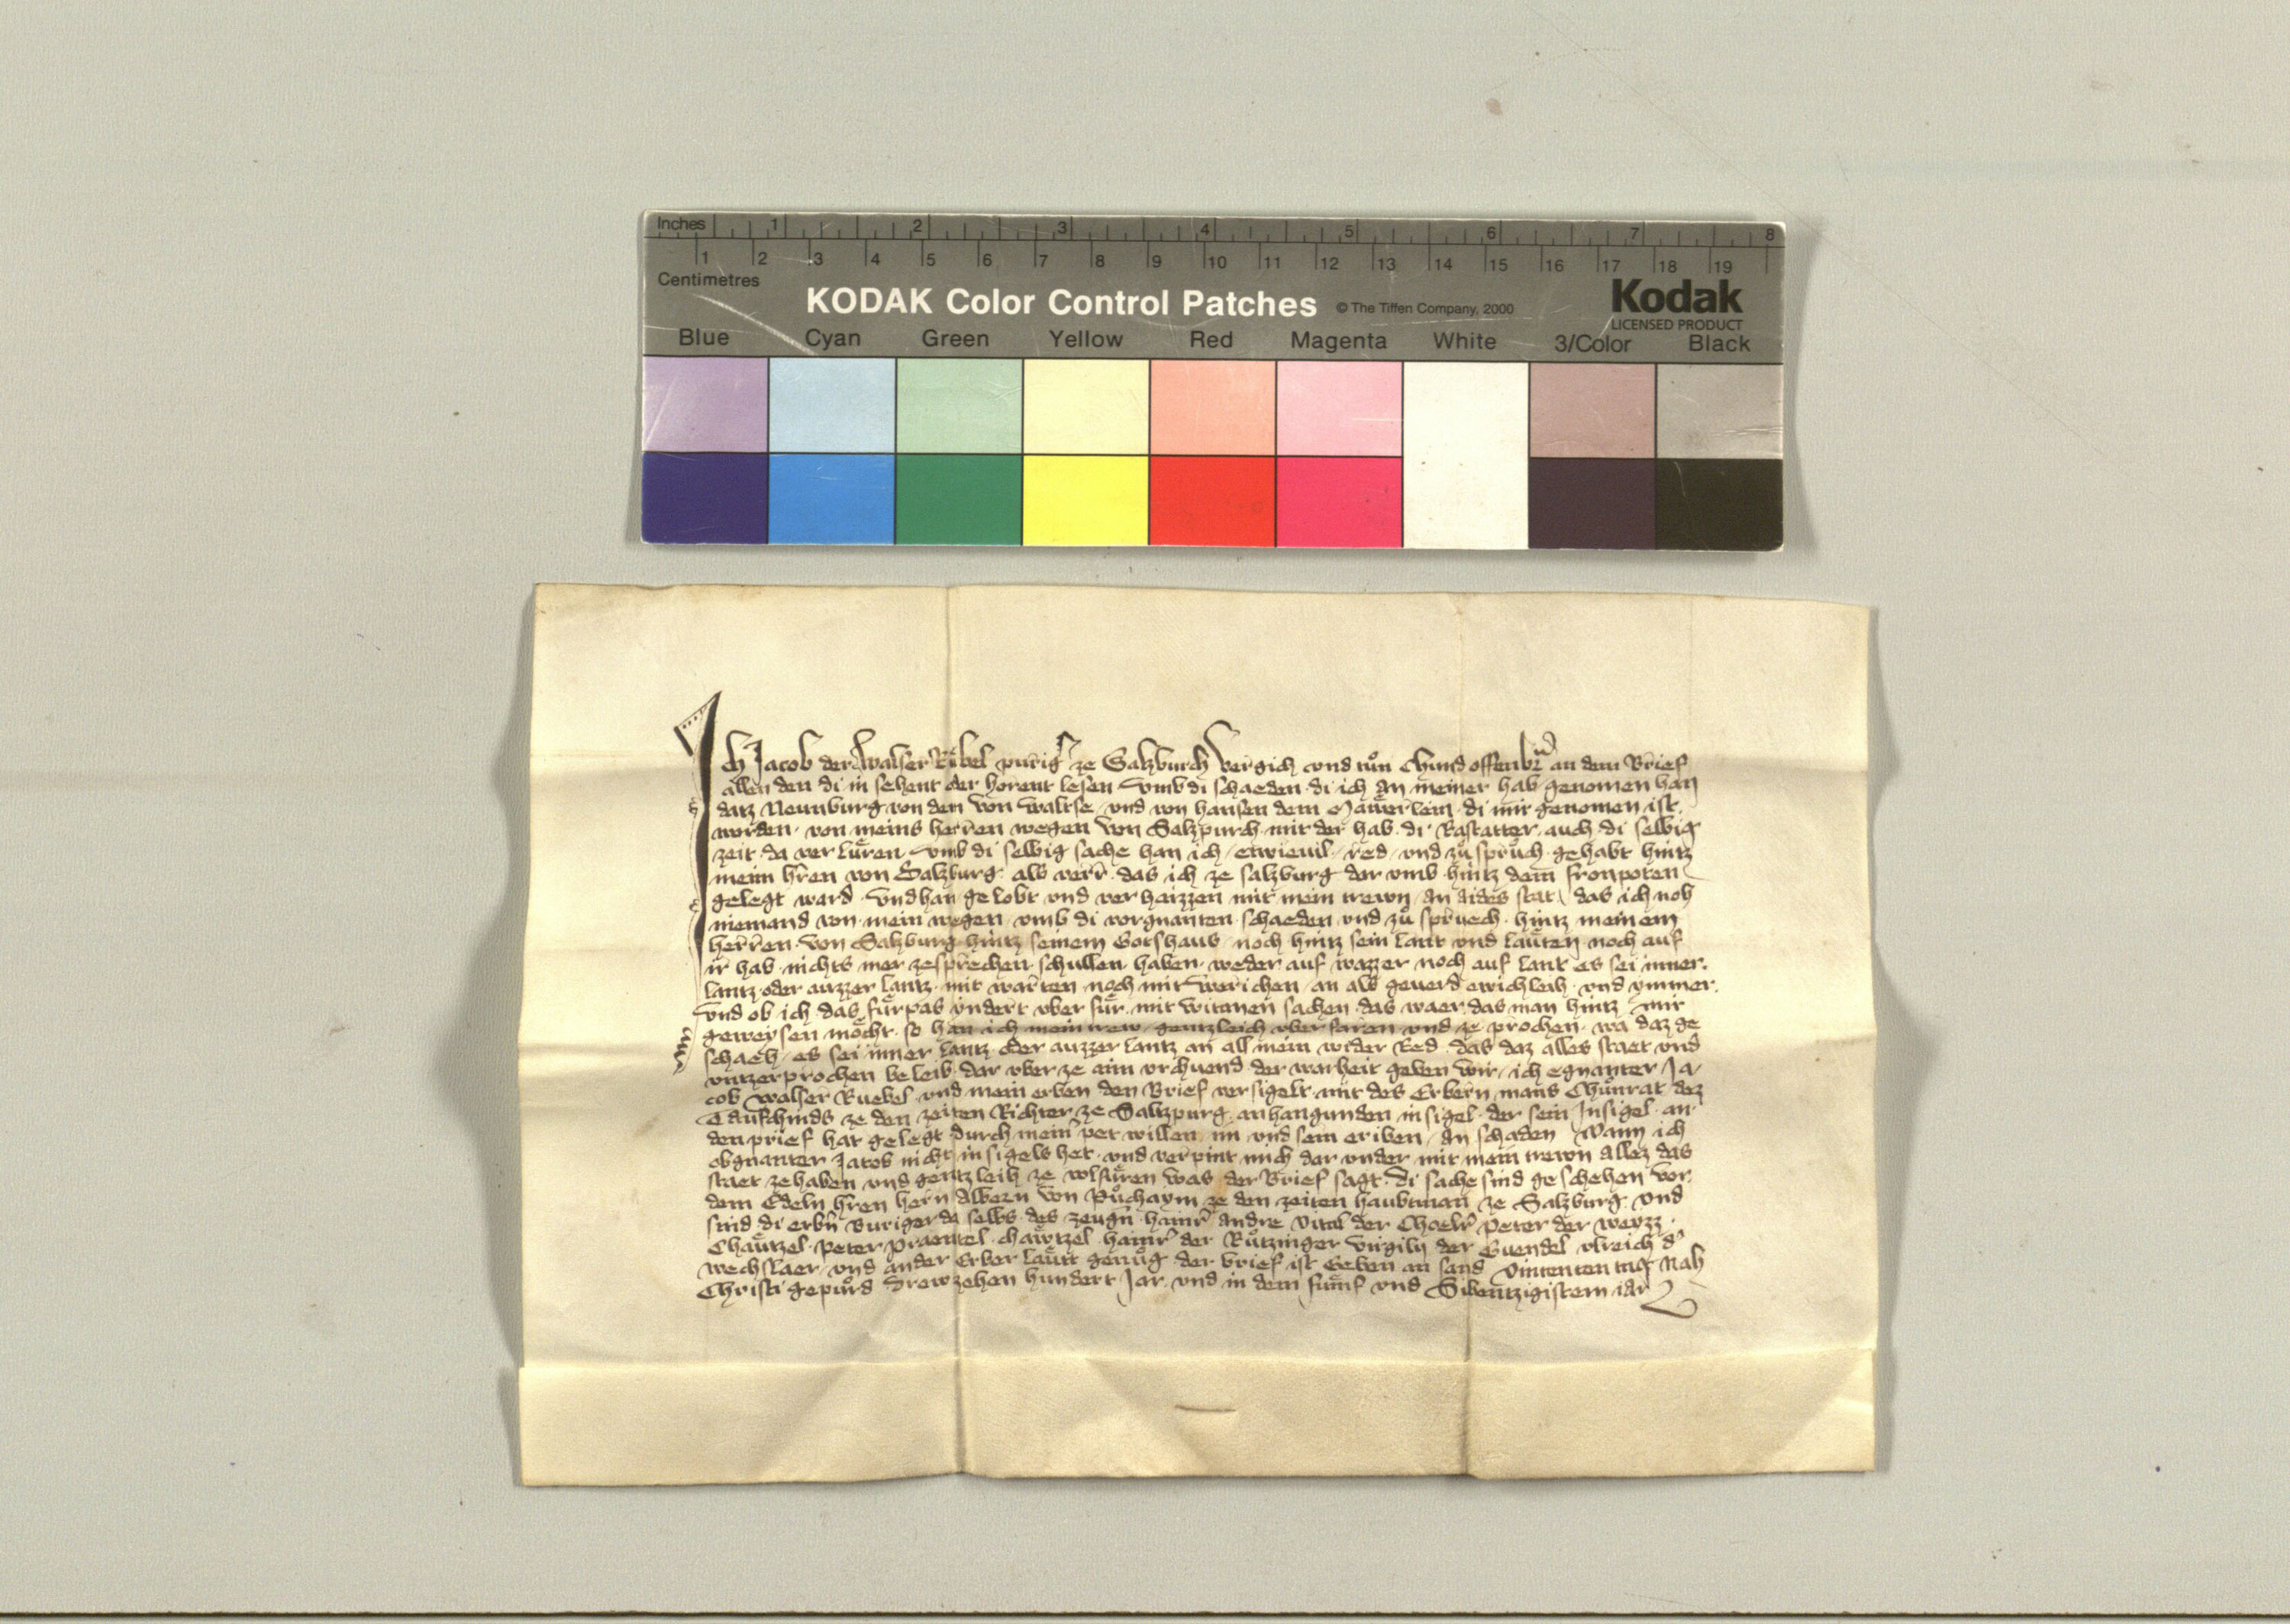 Inches 1 2 3 4 5 6 7 8
1 2 3 4 5 6 7 8 9 10 11 12 13 14 15 16 17 18 19
Centimetres
KODAK Color Control Patches © The Tiffen Company, 2000 Kodak
LICENSED PRODUCT
Blue Cyan Green Yellow Red Magenta White 3/Color Black
Ich Jacob der walser Růbel purig ze Salzburch vergich vnd tůn chund offenbar an dem Brief
allen den di in sehent oder horent lesen vmb di schaeden di ich an meiner hab genomen han
datz Neunburg von den von waltse vnd von hansen dem Mäwerlein di mir genomen ist
worden von meins herren wegen von Salzpurch mit der hab di Rastatter auch di selbig
zeit da verluren vmb di selbig sache han ich etwievil red vnd zů sprůch gehabt hintz
meim hren von Salzburg als verr das ich ze salzburg dar vmb hintz dem fronpoten
gelegt ward vnd han gelobt vnd verhaizzen mit mein trewn an aides stat das ich noh
niemand von mein wegen vmb di vorgnanten schaeden vnd zů sprůech hintz meinem
herren von Salzburg hintz seinem Gotshaus noch hintz sein lant vnd läuten noch auf
ir hab nichts mer ze sprechen schullen haben weder auf wazzer noch auf lant es sei inner
lantz oder auzzer lantz mit warten noch mit werichen an als geuerd ewichleih vnd ymmer
vnd ob ich das fürpas indert vber für mit witanen sachen das waer das man hintz mir
geweysen möcht so han ich mein trew gentzleich vber faren vnd ze prochen wa daz ge
schaeh es sei inner lantz oder auzzer lantz an all mein wider Red das daz alles staet vnd
vntzerprochen beleib dar vber ze aim vrchuend der warheit geben wir ich egnanter Ja
cob walser Ruebel vnd mein erben den Brief versigelt mit des Erbern mans Chunrat dez
Taufchinds ze den zeiten Richter ze Saltzpurg anhangunden insigel der sein Insigel an
den prief hat gelegt durch meiner pet willen im vnd sein eriben an schaden Wann ich
obgnanter Jacob nicht insigels het vnd verpint mich dar vnder mit mein trewn allez das
staet ze haben vnd gentzleih ze volfüren was der Brief sagt di sache sind geschehen vor
dem Edeln hren hern Albern von Půchaym ze den zeiten haubtman ze Salzburg vnd
sind di erbn Buriger da selbs des zeugn hainr andre vital der Chaelr peter der weyzz
Chäutzel peter praentel chäwtzel hainr der Růtzinger virgily der Guendel vlreich dr
wechslaer vnd ander Erber läutt genůg der brief ist Geben an sand vintenten tag Nah
Christi gepůrd Drewzehen hundert Jar vnd in dem fümf vnd Sibentzigistem iar